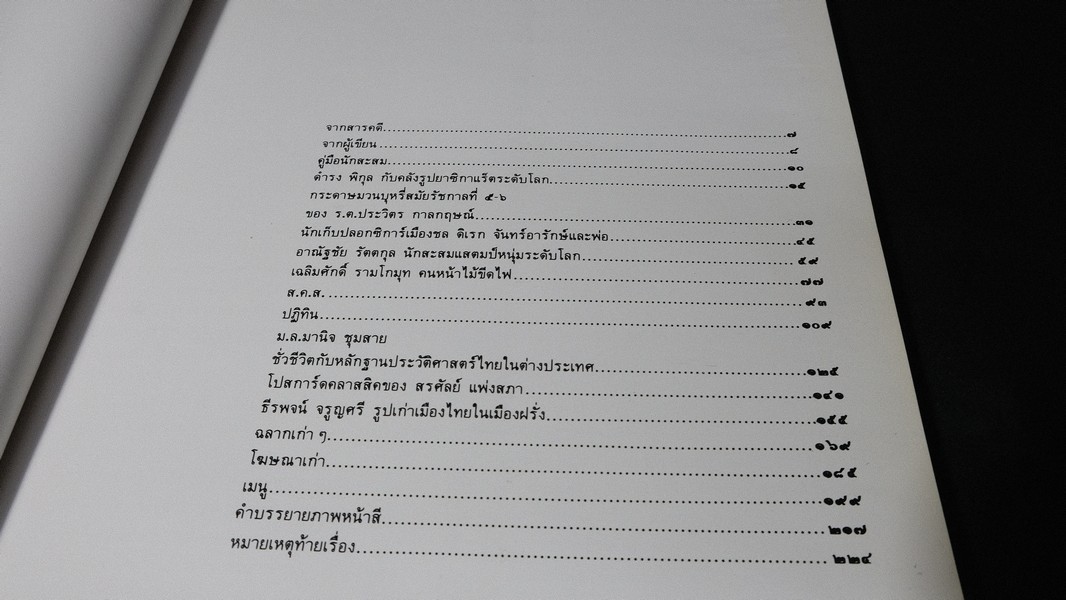 จากสารคดี........๗
จากผู้เขียน........๘
คู่มือนักสะสม........๑๐
ดำรง พิกุล กับคลังรูปยาซิกาแร็ตระดับโลก........๑๕
กระดาษมวนบุหรี่สมัยรัชกาลที่ ๕-๖
ของ ร.ต.ประวิตร กาลกฤษณ์........๓๑
นักเก็บปลอกซิการ์เมืองชล ดิเรก จันทร์อารักษ์และพ่อ........๔๕
อาณัฐชัย รัตตกุล นักสะสมแสตมป์หนุ่มระดับโลก........๕๙
เฉลิมศักดิ์ รามโกมุท คนหน้าไม้ขีดไฟ........๗๗
ส.ค.ส.........๙๓
ปฏิทิน........๑๐๙
ม.ล.มานิจ ชุมสาย
ชั่วชีวิตกับหลักฐานประวัติศาสตร์ไทยในต่างประเทศ........๑๒๕
โปสการ์ดคลาสสิคของ สรศัลย์ แพ่งสภา........๑๔๑
ธีรพจน์ จรูญศรี รูปเก่าเมืองไทยในเมืองฝรั่ง........๑๕๕
ฉลากเก่า ๆ........๑๖๙
โฆษณาเก่า........๑๘๕
เมนู........๑๙๙
คำบรรยายภาพหน้าสี........๒๑๗
หมายเหตุท้ายเรื่อง........๒๒๔